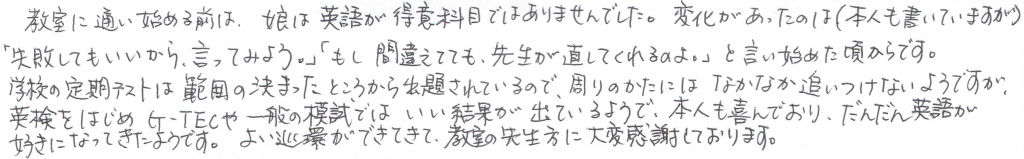 教室に通い始める前は、娘は英語が得意科目ではありませんでした。変化があったのは(本人も書いていますが)
「失敗してもいいから、言ってみよう。」「もし間違えてても、先生が直してくれるのよ。」と言い始めた頃からです。
学校の定期テストは範囲の決まったところから出題されているので、周りのかたにはなかなか追いつけないようですが、
英検をはじめG-TECや一般の模試ではいい結果が出ているようで、本人も喜んでおり、だんだん英語が
好きになってきたようです。よい巡環ができてきて、教室の先生方に大変感謝しております。